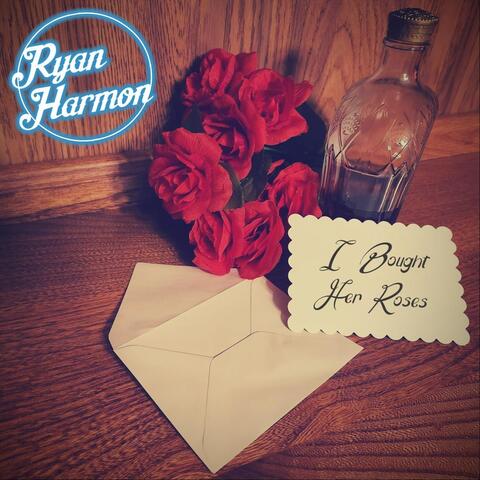 Ryan
Harmon
I Bought
Her Roses